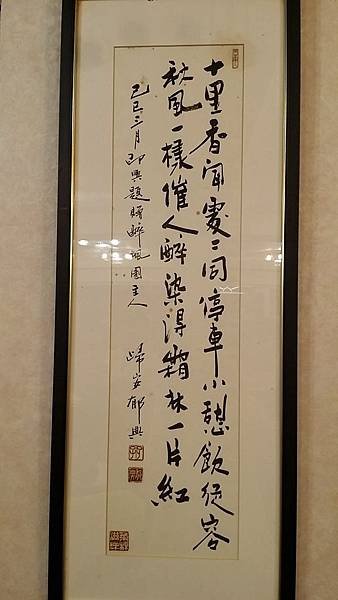 十里香聞處處同停車小憩飲從容
秋風一樣催人醉染得霜林一片紅
己巳三月即興題贈醉楓園主人　歸安郁興